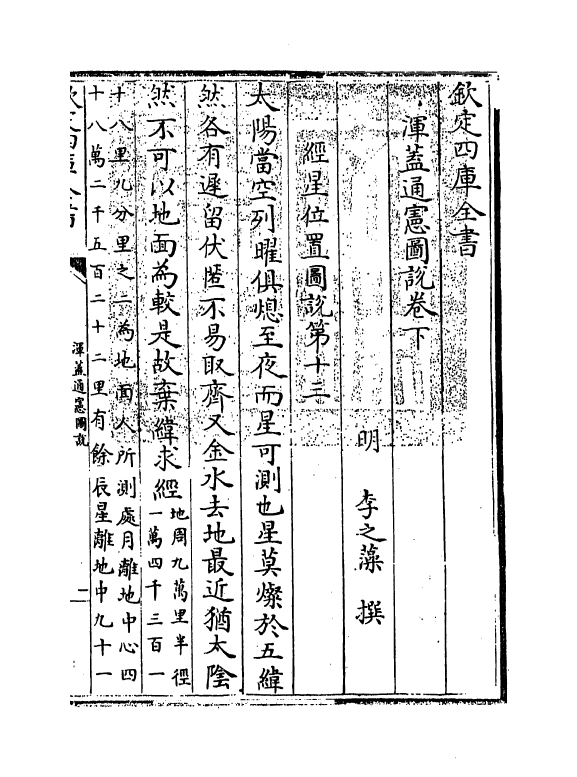 欽定四庫全書
渾蓋通憲圖說卷下
明 李之藻 撰
經星位置圖說第十三
太陽當空列曜俱熄至夜而星可測也星莫燦於五緯
然各有遲留伏匿不易取齊又金水去地最近猶太陰
然不可以地面為較是故棄緯求經
地周九萬里半徑
一萬四千三百一
十八里九分里之二為地面人所測處月離地中心四
十八萬二千五百二十二里有餘辰星離地中九十一
渾蓋通憲圖說
一